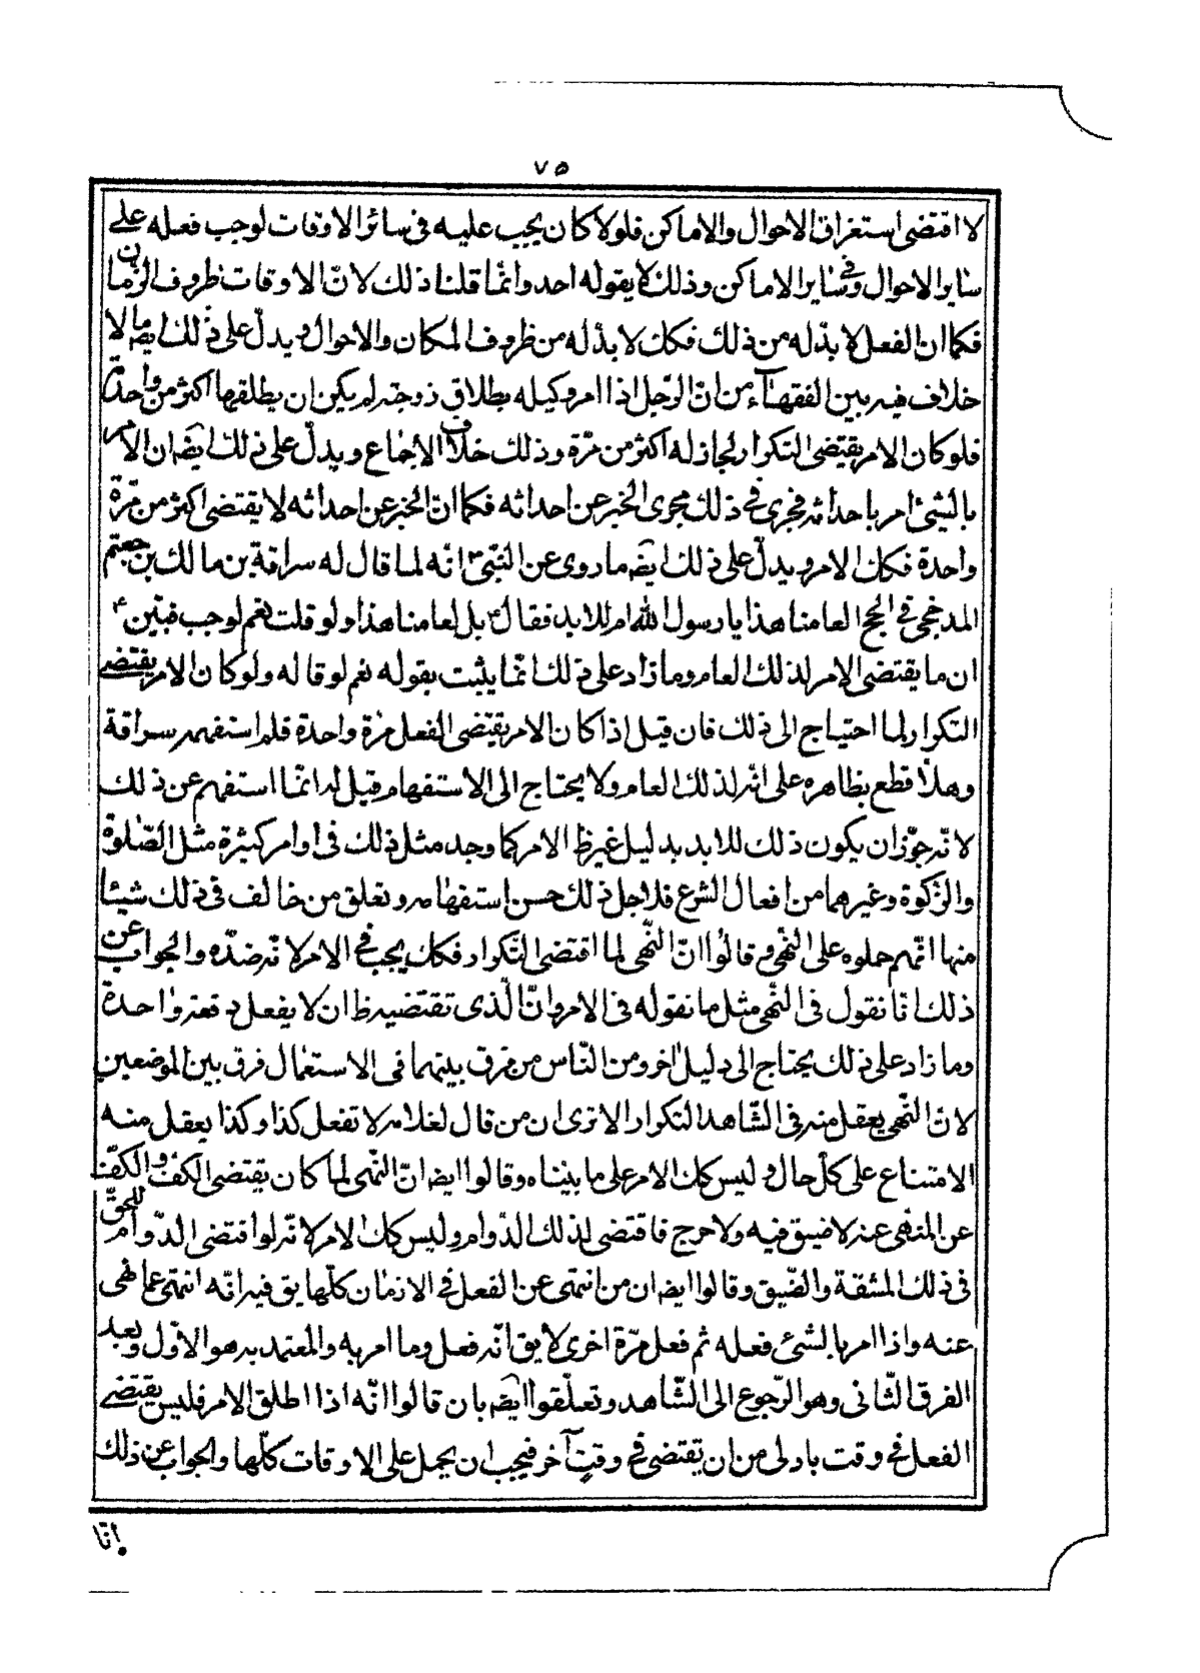 ٧٥
لا اقتضى استغراق الاحوال والاماكن فلو لا كان يجب عليه فى سائر الاوقات لوجب فعله على
ساير الاحوال وفى ساير الاماكن وذلك لا يقوله احد وانّما قلنا ذلك لانّ الاوقات ظروف الزمان
فكما ان الفعل لا بدّ له من ذلك فكك لا بدّ له من ظروف المكان والاحوال ويدلّ على ذلك ايضه ما لا
خلاف فيه بين الفقهاء من انّ الرّجل اذا امر وكيله بطلاق زوجته لم يكن ان يطلقها اكثر من واحدة
فلو كان الامر يقتضى التكرار لجاز له اكثر من مرّة وذلك خلاف الاجماع ويدلّ على ذلك ايضه ان الامر
بالشيئ امر باحداثه فجرى فى ذلك مجرى الخبر عن احداثه فكما انّ الخبر عن احداثه لا يقتضى اكثر من مرّة
واحدة فكك الامر ويدلّ على ذلك ايضه ما روى عن النّبىّ ص انّه لما قال له سراقة بن مالك بن جعثم
المدلجى فى الحج العامنا هذا يا رسول الله ام للابد فقال ع بل لعامنا هذا ولو قلت نعم لوجب فبيّن ع
ان ما يقتضى الامر لذلك العام وما زاد على ذلك انّما يثبت بقوله نعم لو قاله ولو كان الامر يقتضى
التكرار لما احتياج الى ذلك فان قيل اذا كان الامر يقتضى الفعل مرّة واحدة فلم استفهم سراقة
وهلّا قطع بظاهره على انّه لذلك العام ولا يحتاج الى الاستفهام قيل له انّما استفهم عن ذلك
لانّه جوّز ان يكون ذلك للابد بدليل غير ظ الامر كما وجد مثل ذلك فى اوامر كثيرة مثل الصّلوة
والزّكوة وغيرهما من افعال الشرع فلاجل ذلك حسن استفهامه وتعلق من خالف فى ذلك شيئا
منها انّهم حملوه على النّهى وقالوا انّ النّهى لما اقتضى التّكرار فكك يجب فى الامر لانّه ضدّه والجواب عن
ذلك انّا نقول فى النّهى مثل ما نقوله فى الامر وانّ الّذى تقتضيه ظ ان لا يفعل دفعة واحدة
وما زاد على ذلك يحتاج الى دليل اخر ومن النّاس من فرق بينهما فى الاستعمال فرق بين الموضعين
لانّ النّهى يعقل منه فى الشّاهد التكرار الا ترى ان من قال لغلامه لا تفعل كذا وكذا يعقل منه
الامتناع على كلّ حال وليس كك الامر على ما بيّناه وقالوا ايضه انّ النّهى لما كان يقتضى الكفّ والكفّ
عن المنهى عنه لا ضيق فيه ولا حرج فاقتضى لذلك الدّوام وليس كك الامر لانّه لو اقتضى الدّوام للحقّ
فى ذلك المشقة والضّيق وقالوا ايضه ان من انتهى عن الفعل فى الازمان كلّها يق فيه انّه انتهى عما نهى
عنه واذا امر بالشئ فعله ثم فعل مرّة اخرى لا يق انّه فعل وما امر به والمعتمد به هو الاوّل وبعد
الفرق الثّانى وهو الرّجوع الى الشّاهد وتعلّقوا ايضه بان قالوا انّه اذا اطلق الامر فليس يقتضى
الفعل فى وقت باولى من ان يقتضى فى وقت آخر فيجب ان يحمل على الاوقات كلّها والجواب عن ذلك
انّا